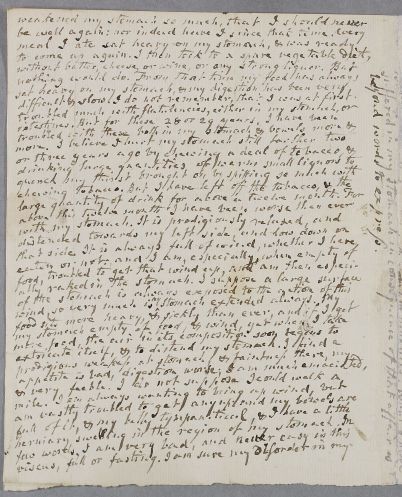 weakened my stomach so much, that I should never
be well again: nor indeed have I since that time. Every
meal I ate sat heavy on my stomach, & was ready
to come up again. I then took to a spare vegetable diet,
without butter, cheese, or wine, or any strong liquor. But
nothing would do. From that time my food has always
sat heavy on my stomach, & my digestion has been very
difficult & slow. I do not remember, that I was at first
troubled much with flatulencies, either in my stomach, or
intestines. But for these 28 or 29 years, I have been
troubled with these both in my stomach & bowels more &
more. I believe I hurt my stomach still farther two
or three years ago by chewing a deal of tobacco, &
drinking large quantities of warm small liquors to
quench my thirst brought on by spitting so much with
chewing tobacco. But I have left off the tobacco, & the
large quantity of drink for above a twelve month. For
above this twelve month, I have been worse than ever
with my stomach. It is prodigiously relaxed, and
distended towards my left side, and low down on
that side. It is always full of wind, whether I have
eaten or not, and I am, especially when empty of
food, troubled to get that wind up, and am then especi-
ally racked in the stomach. I suppose a large surface
of the stomach is always exposed to the action of this
wind, so very much is my stomach extended always. My
food is more heavy, & sickly than ever, and if I get
my stomach empty of food, & wind, yet when I take
more food, the air in its composition soon begins to
extricate itself, & to distend my stomach. I find a
prodigious weakness at stomach, & faintness there, my
appetite is bad, digestion worse, I am much emaciated,
& very feeble. I do not suppose I could walk a
mile. I am always wanting to bring up wind, but
am vastly troubled to get any up, and my bowels are
full of it, & my belly tympanitical, & I have a little
herniary swelling in the region of my stomach. In
few words, I am very bad, and never easy in this
viscus, full or fasting. I am sure my disorder in my